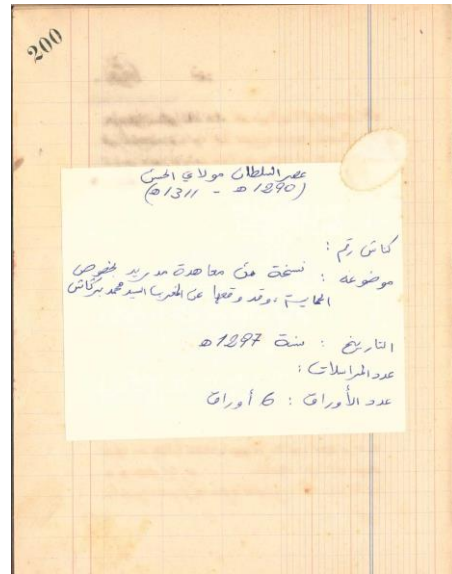 200
عصر السلطان مولاي الحسن
(1290 ه - 1311 ه)
كناش رقم :
موضوعه : نسخة من معاهدة مدريد بخصوص
الحماية، وقد وقعها عن المغرب السيد محمد بركاش
التاريخ : سنة 1297 ه
عدد المراسلات :
عدد الأوراق : 6 أوراق